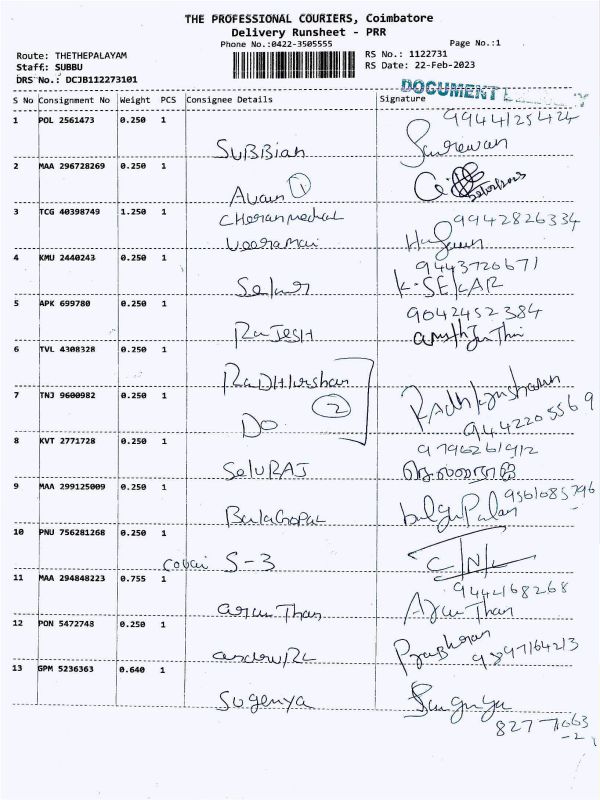 THE PROFESSIONAL COURIERS, Coimbatore
Delivery Runsheet - PRR
Phone No.:0422-3505555 Page No.:1
Route: THETHEPALAYAM RS No.: 1122731
Staff: SUBBU RS Date: 22-Feb-2023
DRS No.: DCJB112273101
DOCUMENT
S No Consignment No Weight PCS Consignee Details Signature
1 POL 2561473 0.250 1 9944125424
SUBBiah
2 MAA 296728269 0.250 1
1
3 TCG 40398749 1.250 1 9942826334
4 KMU 2440243 0.250 1 9443720671
Sekar K-SEKAR
5 APK 699780 0.250 1 9042452384
RaJESH
6 TVL 4308328 0.250 1
RaDHKrishan
7 TNJ 9600982 0.250 1 Radhkrushann
DO 2 9442205569
8 KVT 2771728 0.250 1 9796261912
SelURAJ செல்வராஜ்
9 MAA 299125009 0.250 1 9561085796
BalaGopaL
10 PNU 756281268 0.250 1
S-3 C/N/L
11 MAA 294848223 0.755 1 9444168268
arun Than Arun Than
12 PON 5472748 0.250 1
13 GPM 5236363 0.640 1
Sugenya